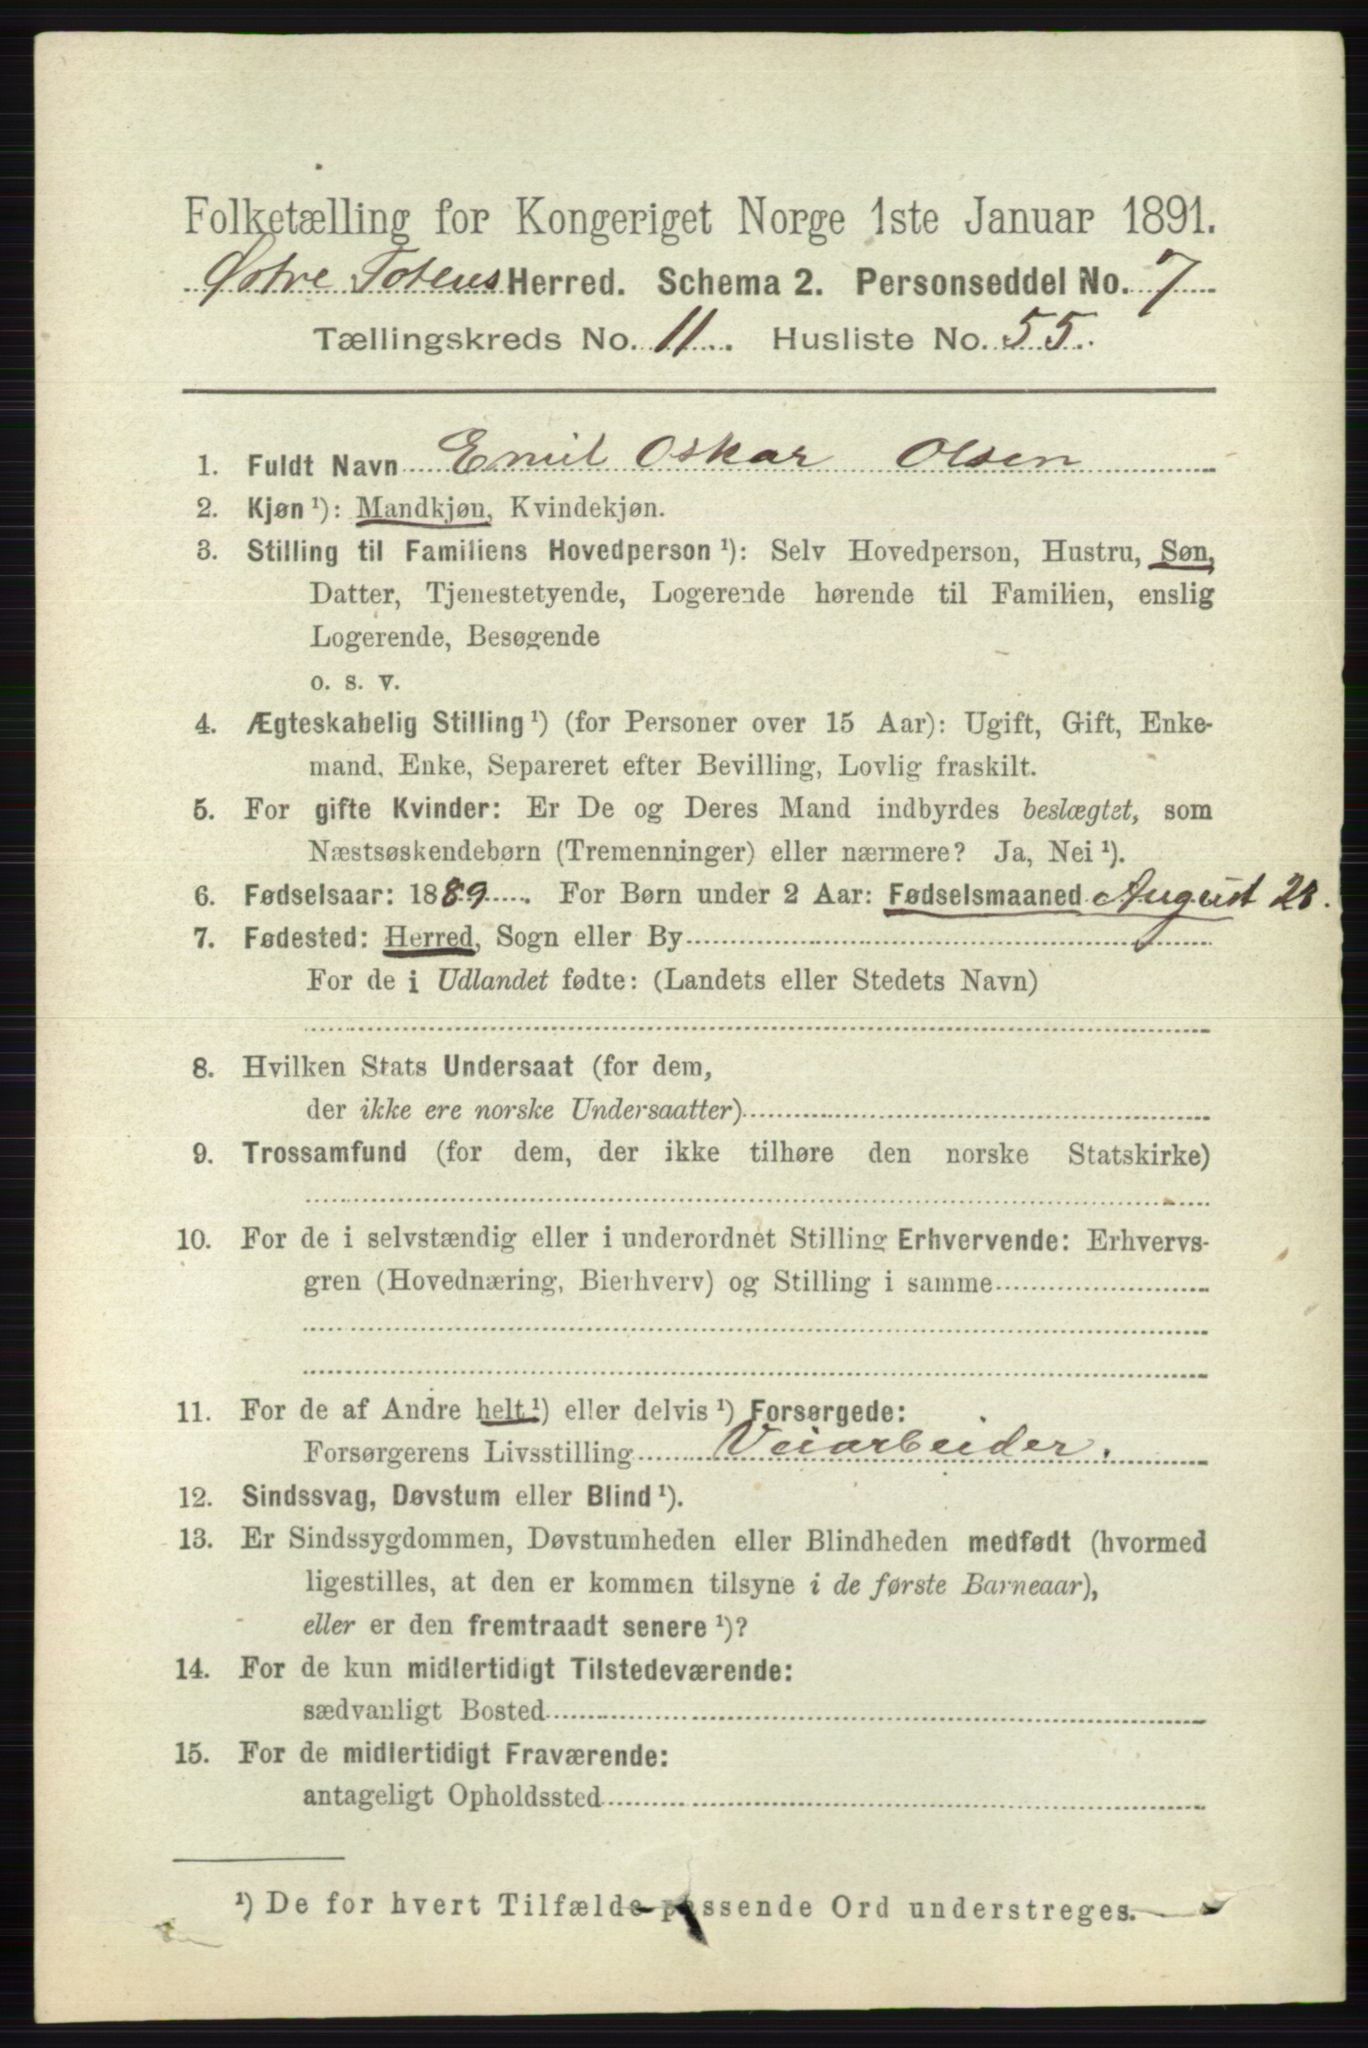 Folketælling for Kongeriget Norge 1ste Januar 1891.
Østre Totens Herred. Schema 2. Personseddel No. 7
Tællingskreds No. 11. Husliste No. 55.
1. Fuldt Navn Emil Oskar Olsen
2. Kjøn ¹): Mandkjøn, Kvindekjøn.
3. Stilling til Familiens Hovedperson ¹): Selv Hovedperson, Hustru, Søn,
Datter, Tjenestetyende, Logerende hørende til Familien, enslig
Logerende, Besøgende
o. s. v.
4. Ægteskabelig Stilling ¹) (for Personer over 15 Aar): Ugift, Gift, Enke-
mand, Enke, Separeret efter Bevilling, Lovlig fraskilt.
5. For gifte Kvinder: Er De og Deres Mand indbyrdes beslægtet, som
Næstsøskendebørn (Tremenninger) eller nærmere? Ja, Nei ¹).
6. Fødselsaar: 1889. For Børn under 2 Aar: Fødselsmaaned August 28.
7. Fødested: Herred, Sogn eller By
For de i Udlandet fødte: (Landets eller Stedets Navn)
8. Hvilken Stats Undersaat (for dem,
der ikke ere norske Undersaatter)
9. Trossamfund (for dem, der ikke tilhøre den norske Statskirke)
10. For de i selvstændig eller i underordnet Stilling Erhvervende: Erhvervs-
gren (Hovednæring, Bierhverv) og Stilling i samme
11. For de af Andre helt ¹) eller delvis ¹) Forsørgede:
Forsørgerens Livsstilling Veiarbeider.
12. Sindssvag, Døvstum eller Blind ¹).
13. Er Sindssygdommen, Døvstumheden eller Blindheden medfødt (hvormed
ligestilles, at den er kommen tilsyne i de første Barneaar),
eller er den fremtraadt senere ¹)?
14. For de kun midlertidigt Tilstedeværende:
sædvanligt Bosted
15. For de midlertidigt Fraværende:
antageligt Opholdssted
¹) De for hvert Tilfælde passende Ord understreges.